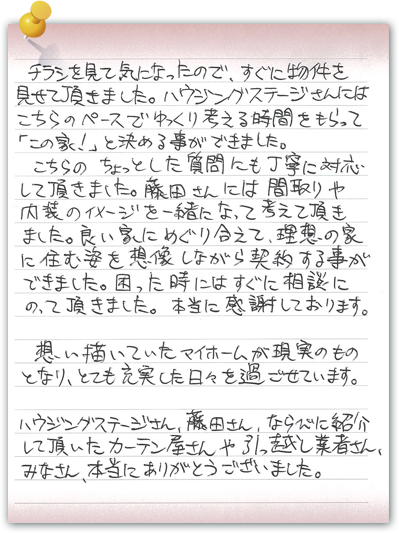 チラシを見て気になったので、すぐに物件を
見せて頂きました。ハウジングステージさんには
こちらのペースでゆっくり考える時間をもらって
「この家！」と決める事ができました。
こちらの ちょっとした質問にも丁寧に対応
して頂きました。藤田さんには間取りや
内装のイメージを一緒になって考えて頂き
ました。良い家にめぐり合えて、理想の家
に住む姿を想像しながら契約する事が
できました。困った時にはすぐに相談に
のって頂きました。本当に感謝しております。
想い描いていたマイホームが現実のもの
となり、とても充実した日々を過ごせています。
ハウジングステージさん,藤田さん,ならびに紹介
して頂いたカーテン屋さんや引っ越し業者さん、
みなさん、本当にありがとうございました。